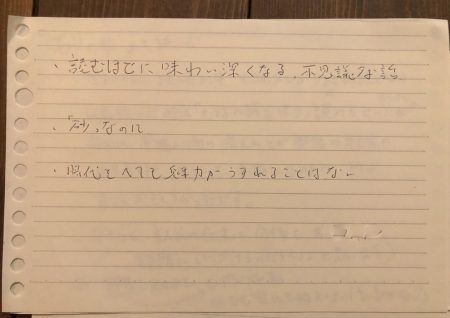 ・読むほどに、味わい深くなる、不思議な話
・「砂」なのに
・時代をへても魅力がうすれることはない